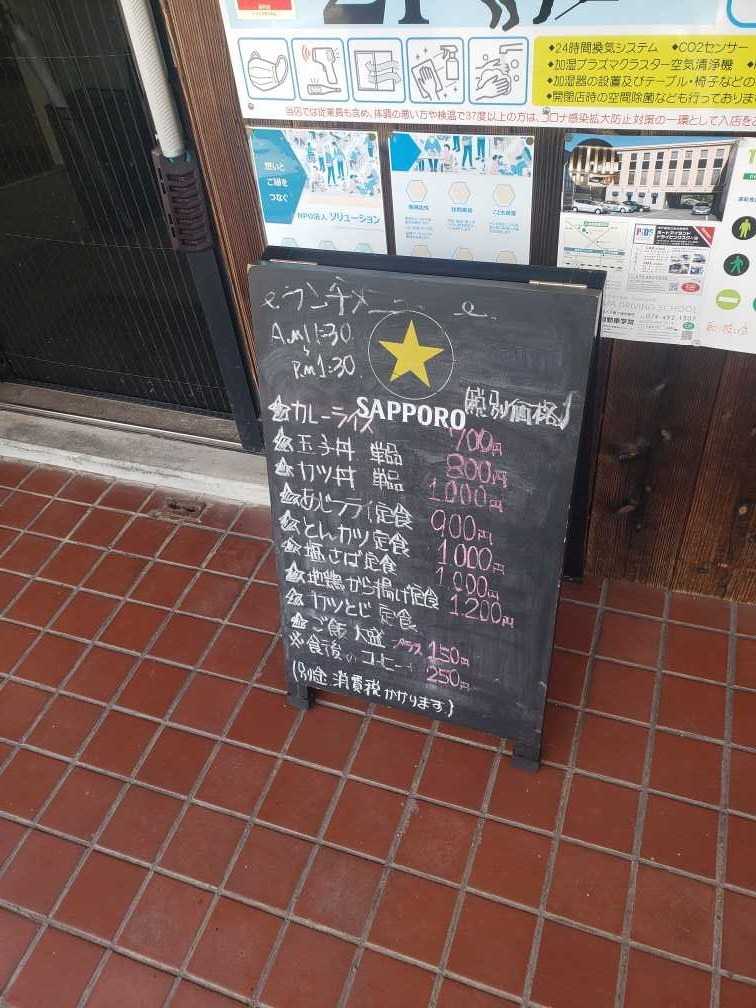 •24時間換気システム •CO2センサー
•加湿プラズマクラスター空気清浄機
•加湿器の設置及びテーブル・椅子などの
•開閉店時の空間除菌なども行っておりま
当店では従業員も含め、体調の悪い方や検温で37度以上の方は、コロナ感染拡大防止対策の一環として入店をお
想いと
ご縁を
つなぐ
NPO法人 ソリューション
DRIVING SCHOOL
自動車学院
ランチメニュー
A.M11:30
P.M1:30
SAPPORO
(特別価格)
☆カレーライス 700円
☆玉子丼 単品 800円
☆カツ丼 単品 1.000円
☆あじフライ定食 900円
☆とんカツ定食 1.000円
☆塩さば定食 1.000円
☆地鶏から揚げ定食 1.200円
☆カツとじ定食
☆ご飯大盛 プラス 150円
※食後のコーヒー 250円
(別途 消費税かかります。)